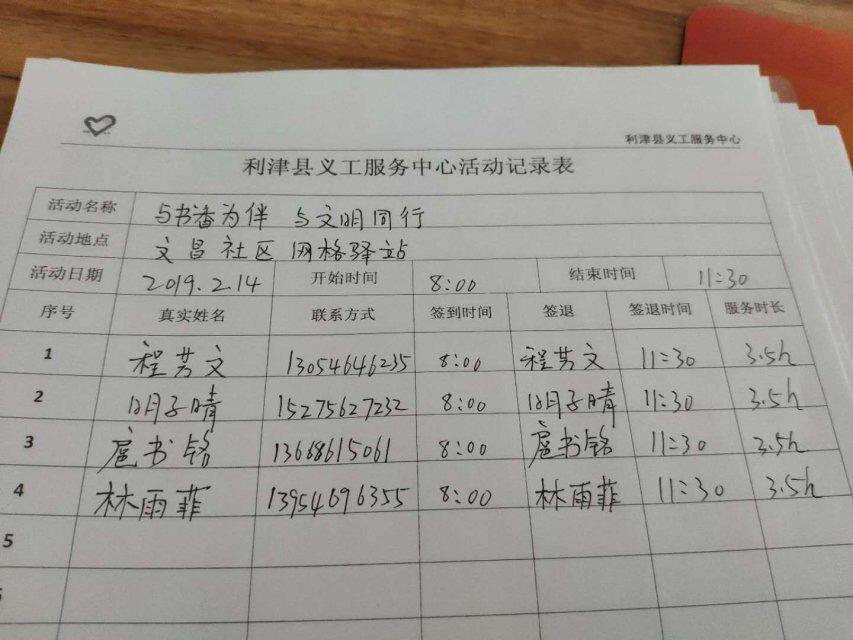 利津县义工服务中心
利津县义工服务中心活动记录表
活动名称 与书香为伴 与文明同行
活动地点 文昌社区 网格驿站
活动日期 2019.2.14 开始时间 8:00 结束时间 11:30
序号 真实姓名 联系方式 签到时间 签退 签退时间 服务时长
1 程芳文 13054646235 8:00 程芳文 11:30 3.5h
2 明子晴 15275627232 8:00 明子晴 11:30 3.5h
3 扈书铭 13668615061 8:00 扈书铭 11:30 3.5h
4 林雨菲 13954696355 8:00 林雨菲 11:30 3.5h
5